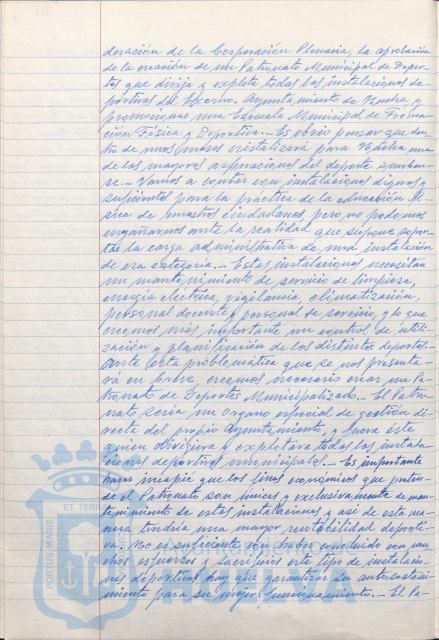 deración de la Corporación Plenaria, la aprobación
de la creación de un Patronato Municipal de Depor-
tes que dirija y explote todas las instalaciones de-
portivas del Excmo. Ayuntamiento de Huelva, y
promocione una Escuela Municipal de Forma-
ción Física y Deportiva.- Es obvio pensar que den-
tro de unos meses cristalizará para Huelva una
de las mayores aspiraciones del deporte onuben-
se.- Vamos a contar con instalaciones dignas y
suficientes para la práctica de la educación fí-
sica de nuestros ciudadanos, pero no podemos
engañarnos ante la realidad que supone sopor-
tar la carga administrativa de una instalación
de esa categoría.- Estas instalaciones necesitan
un mantenimiento de servicio de limpieza,
energía eléctrica, vigilancia, climatización,
personal docente y personal de servicio, y lo que
creemos más importante un control de utili-
zación y planificación de los distintos deportes.
Ante esta problemática que se nos presenta-
rá en breve, creemos necesario crear un Pa-
tronato de Deportes Municipalizado.- El Patro-
nato sería un órgano especial de gestión di-
recta del propio Ayuntamiento, y fuera éste
quien dirigiera y explotara todas las instala-
ciones deportivas municipales.- Es importante
hacer incapié que los fines económicos que preten-
de el Patronato son única y exclusivamente de man-
tenimiento de estas instalaciones y así de esta ma-
nera tendría una mayor rentabilidad deporti-
va. No es suficiente con haber concluido con mu-
chos esfuerzos y sacrificios este tipo de instalacio-
nes deportivas, hay que garantizar su autososteni-
miento para su mejor funcionamiento.- El Pa-
PORTUS MARIS
ET TERRAE
Ayuntamiento de
HUELVA